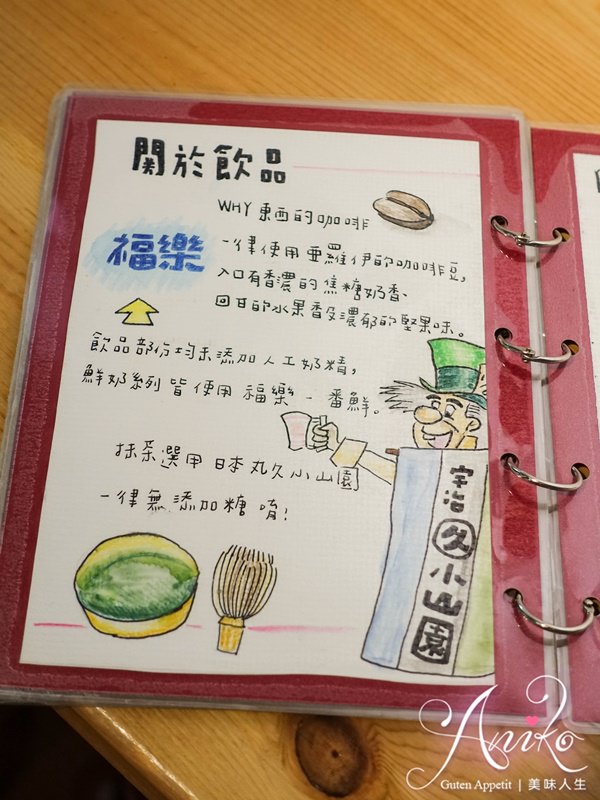 關於飲品
WHY東西的咖啡
福樂
一律使用雲羅伊的咖啡豆,
入口有香濃的焦糖奶香、
回甘的水果香及濃郁的堅果味。
飲品部份均未添加人工奶精,
鮮奶系列皆使用福樂一番鮮。
抹茶選用日本丸久小山園
一律無添加糖唷!
宇治
久
小
山
園
Aniko
Guten Appetit | 美味人生